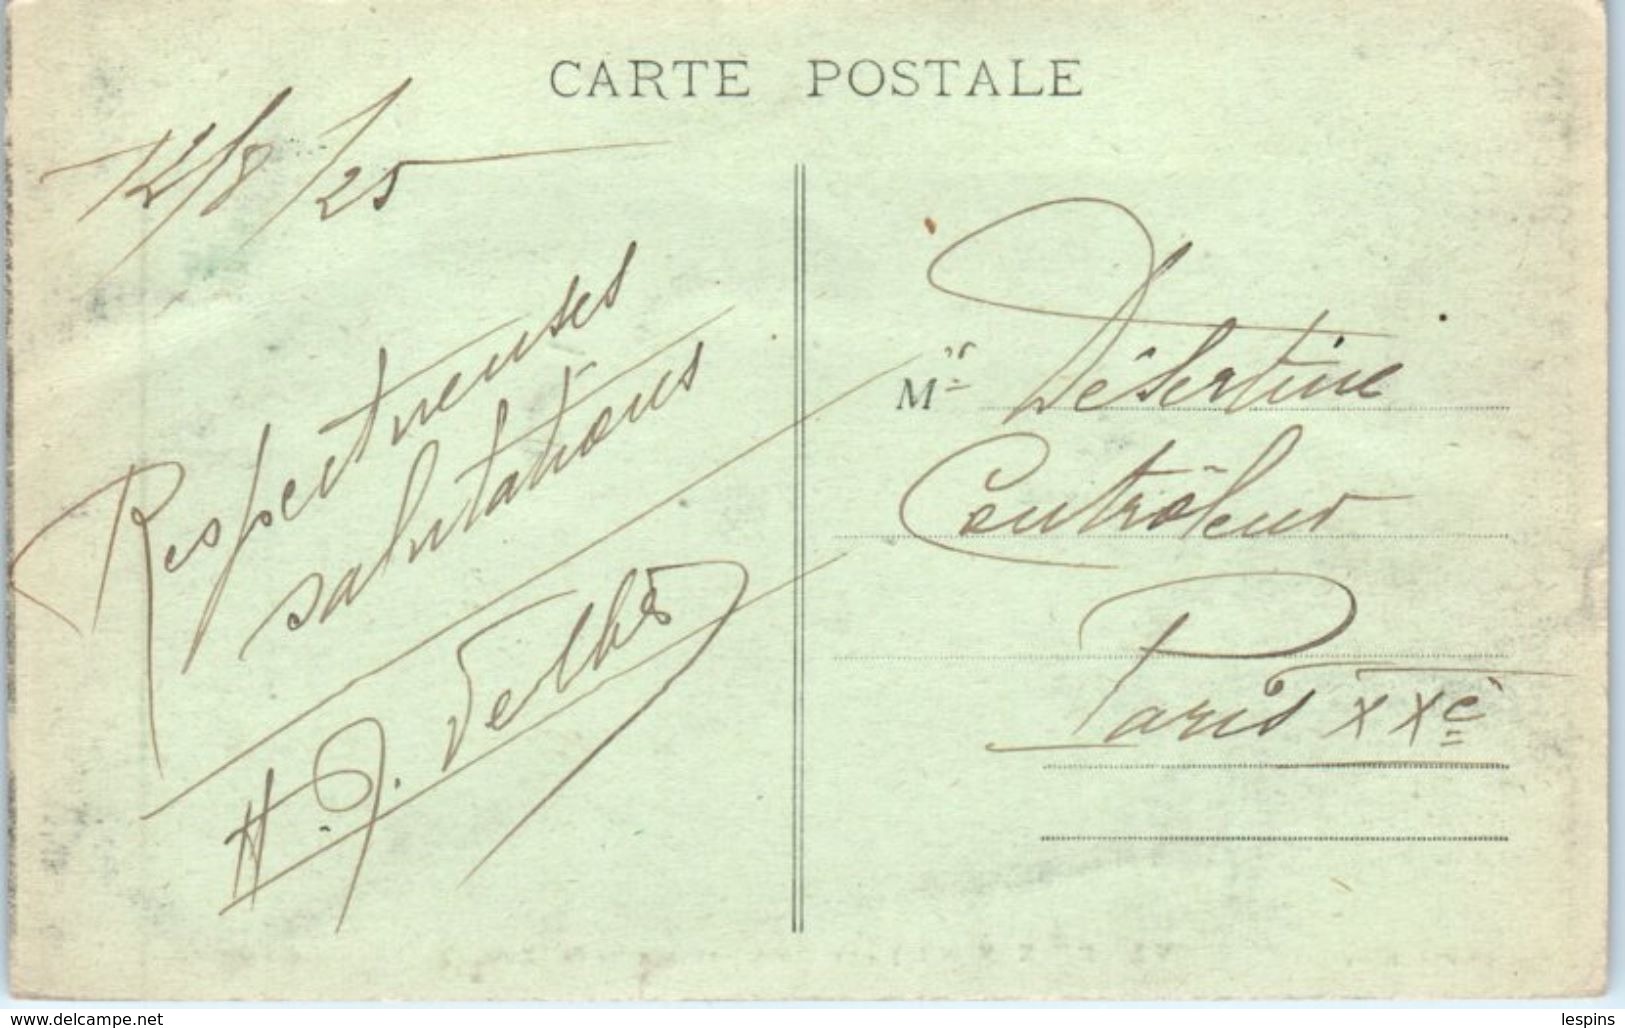 CARTE POSTALE
12/8/25
Respectueuses
salutations
Mr Désertine
Contrôleur
Paris XXe
www.delcampe.net
lespins